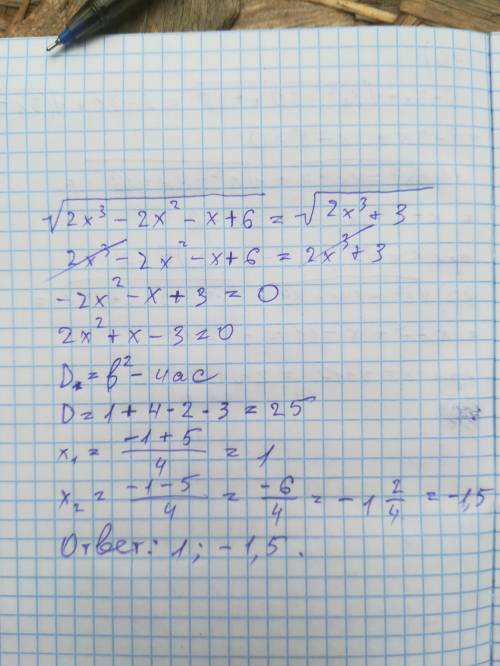 √(2x³ - 2x² - x + 6) = √(2x³ + 3)
2x³ - 2x² - x + 6 = 2x³ + 3
-2x² - x + 3 = 0
2x² + x - 3 = 0
D = b² - 4ac
D = 1 + 4·2·3 = 25
x₁ = (-1 + 5)/4 = 1
x₂ = (-1 - 5)/4 = -6/4 = -1 2/4 = -1,5
Ответ: 1; -1,5.